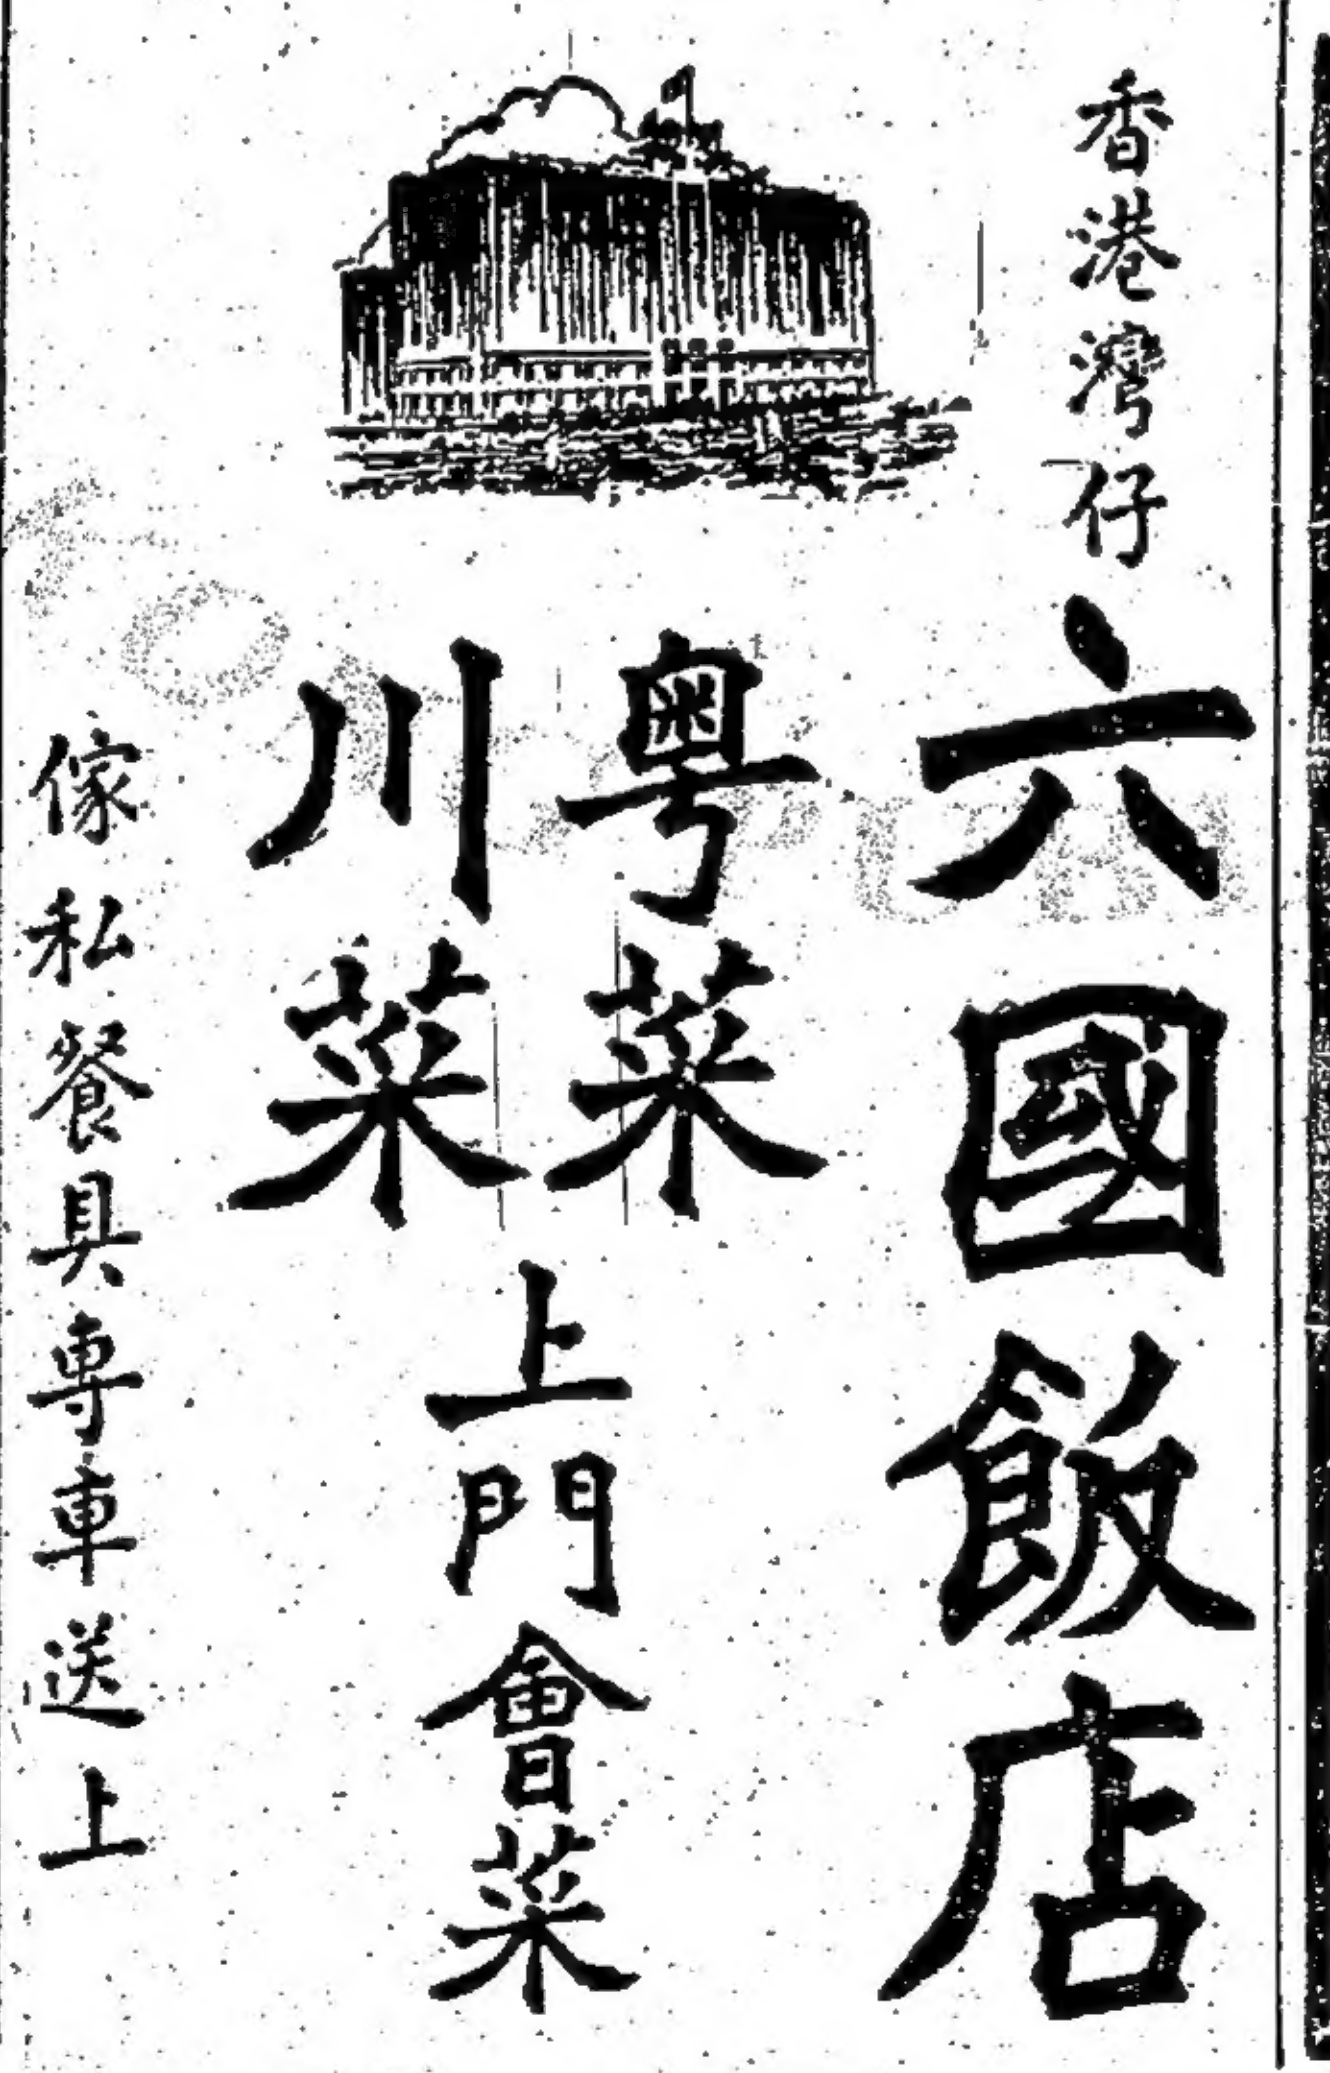 香港灣仔六國飯店
粤菜
川菜
上門會菜
傢私餐具專車送上